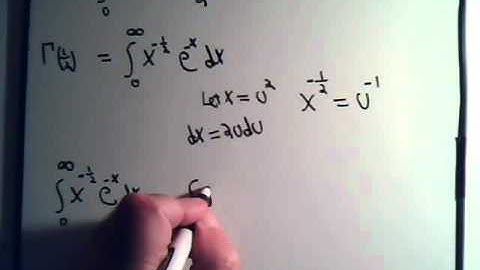 Γ(1/2) = ∫₀^∞ x^(-1/2) e^(-x) dx
Let x = u² x^(-1/2) = u^(-1)
dx = 2u du
∫₀^∞ x^(-1/2) e^(-x) dx